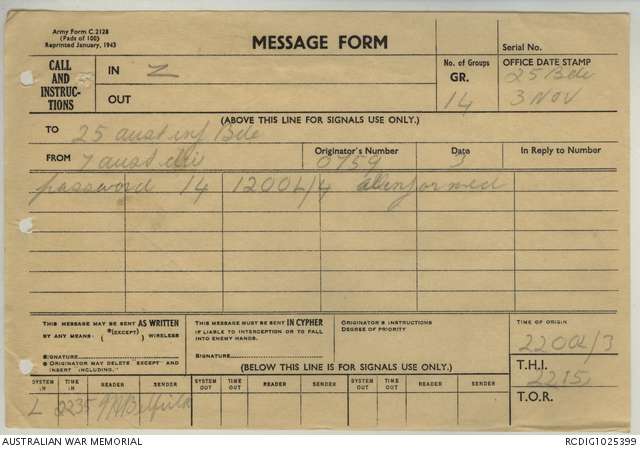 Army Form C.2128
(Pads of 100)
Reprinted January, 1943
MESSAGE FORM
Serial No.
CALL AND INSTRUC-TIONS
IN Z
OUT
No. of Groups
GR.
14
OFFICE DATE STAMP
25 Bde
3 NOV
(ABOVE THIS LINE FOR SIGNALS USE ONLY.)
TO 25 aust inf Bde
FROM 7 aust div
Originator's Number
0759
Date
3
In Reply to Number
password 14 1200L/4 all informed
THIS MESSAGE MAY BE SENT AS WRITTEN
BY ANY MEANS. *(EXCEPT) ( ) WIRELESS
SIGNATURE
* ORIGINATOR MAY DELETE EXCEPT AND
INSERT INCLUDING."
THIS MESSAGE MUST BE SENT IN CYPHER
IF LIABLE TO INTERCEPTION OR TO FALL
INTO ENEMY HANDS.
SIGNATURE
ORIGINATOR'S INSTRUCTIONS
DEGREE OF PRIORITY
TIME OF ORIGIN
2200L/3
(BELOW THIS LINE IS FOR SIGNALS USE ONLY.)
T.H.I.
2215
T.O.R.
SYSTEM IN TIME IN READER SENDER SYSTEM OUT TIME OUT READER SENDER SYSTEM OUT TIME OUT READER SENDER
L 2235
AUSTRALIAN WAR MEMORIAL
RCDIG1025399